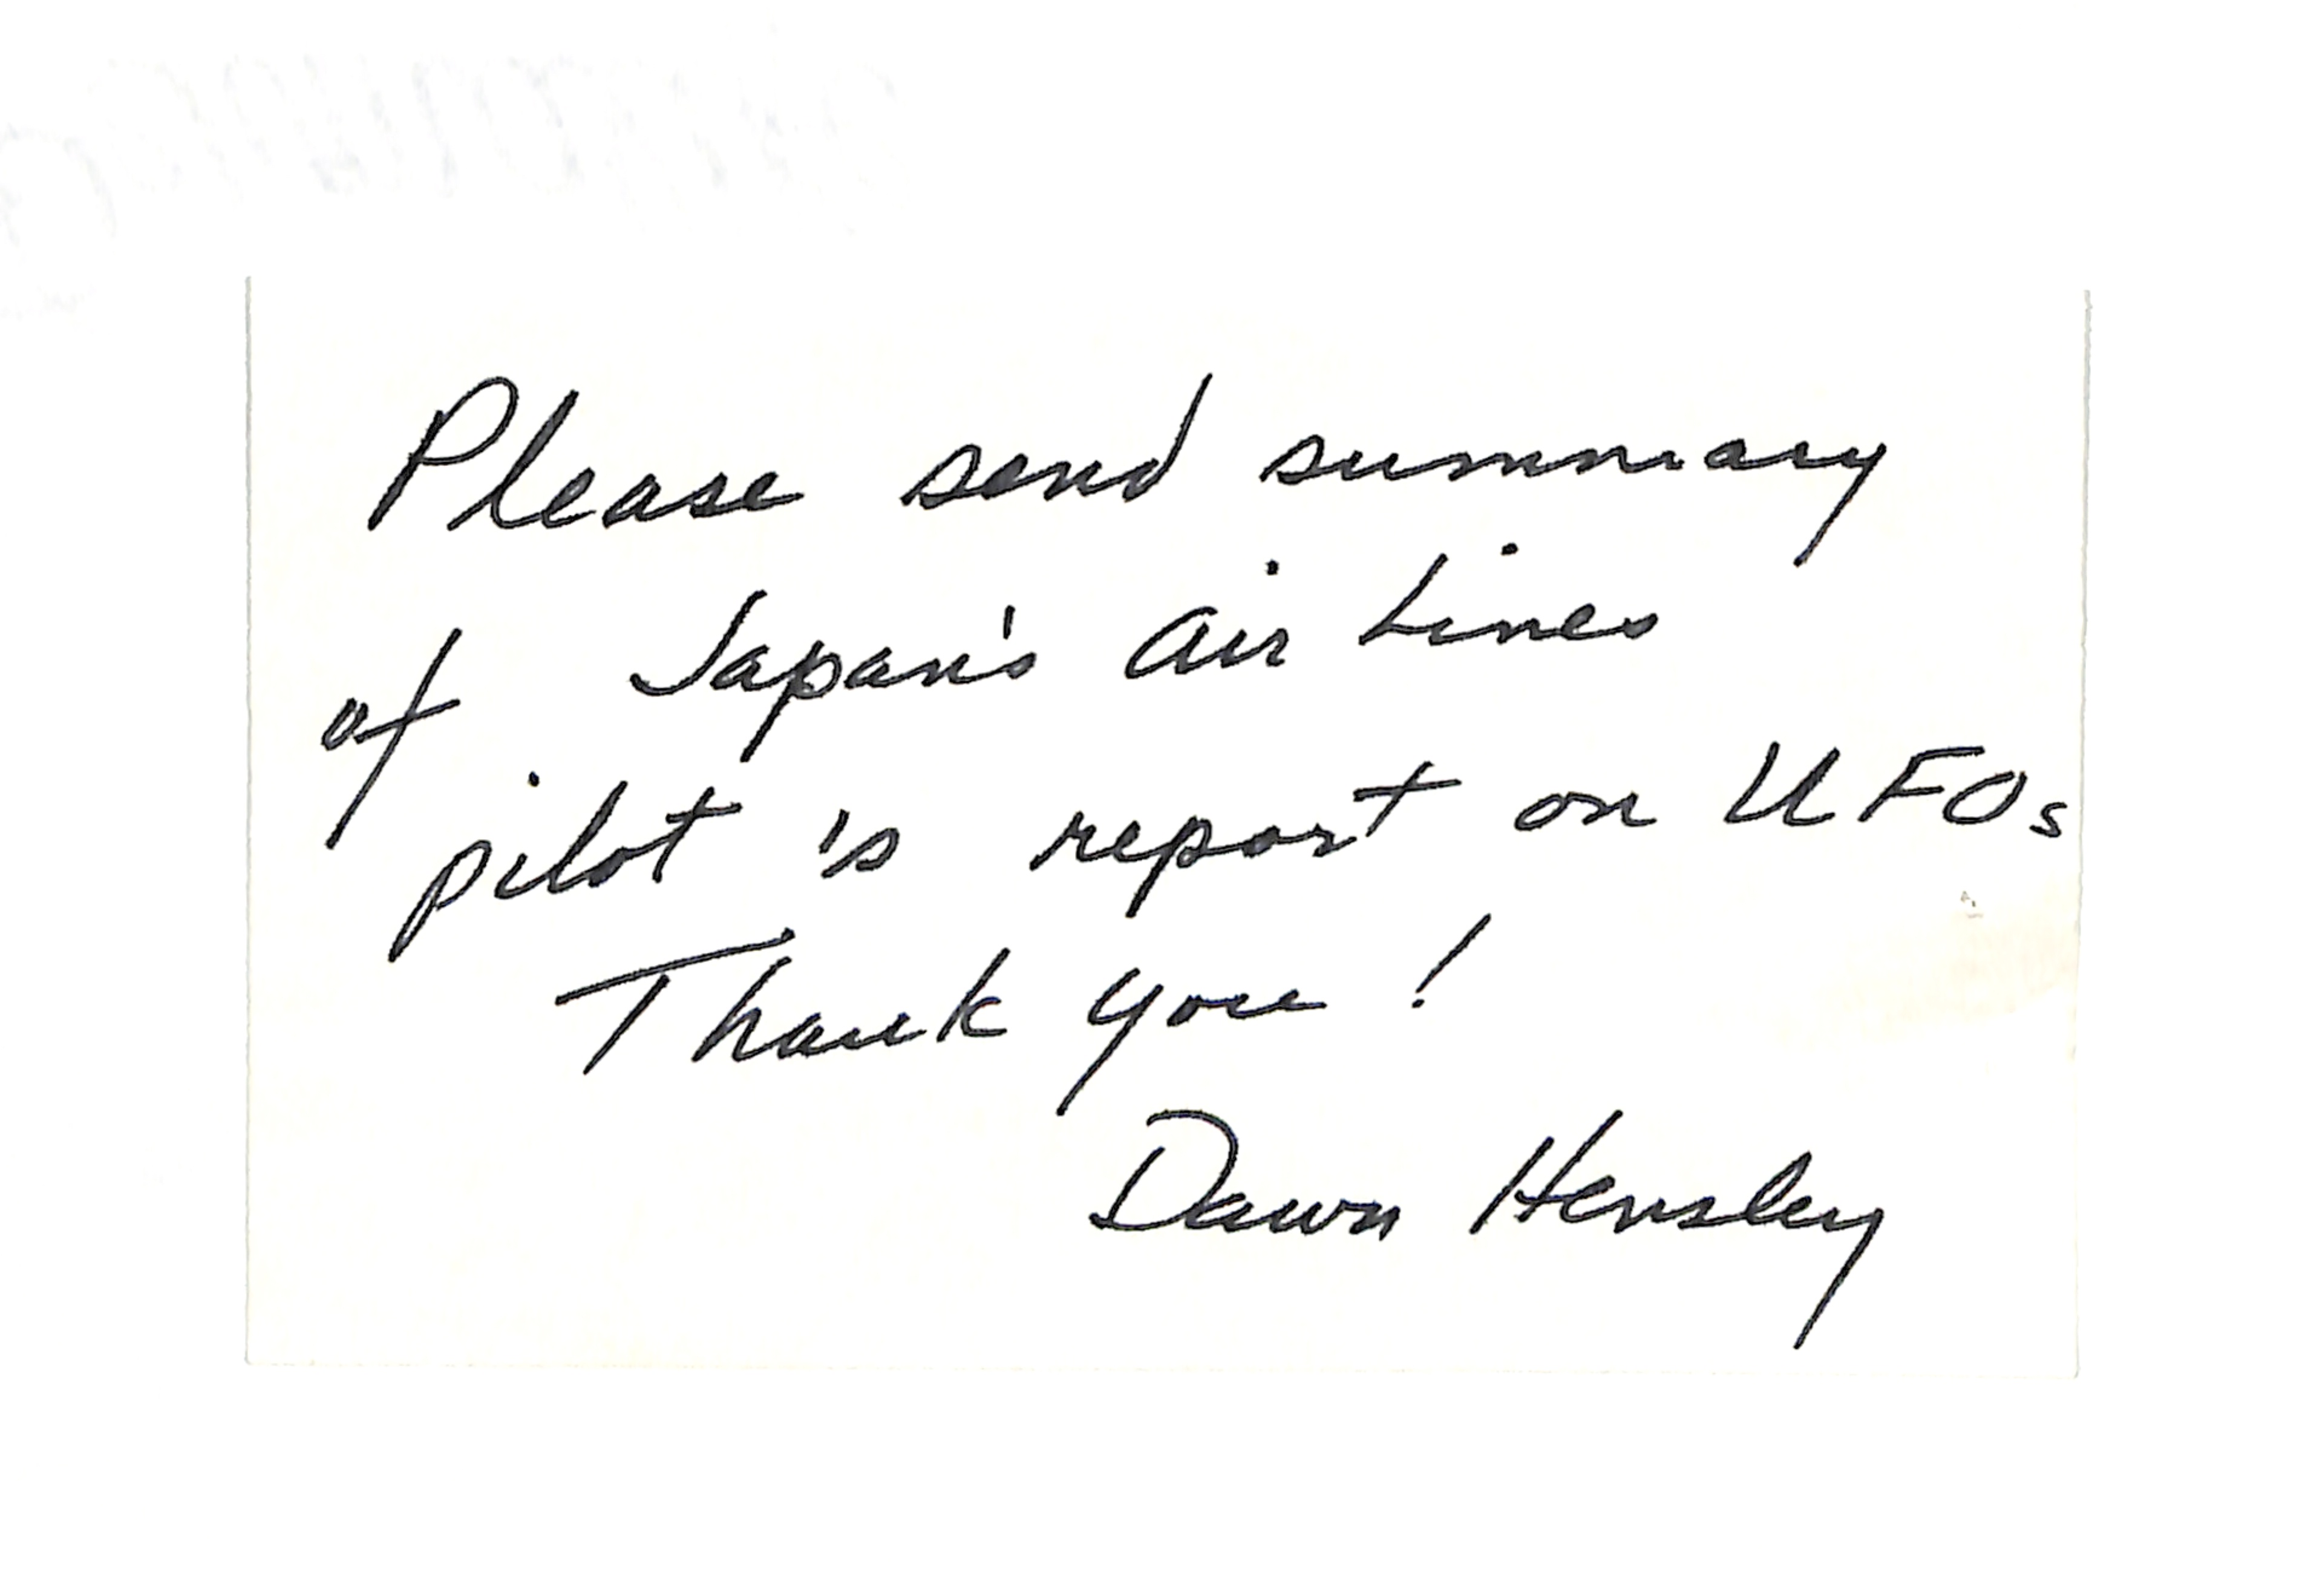 Please send summary
of Japan's Air Lines
pilot's report on UFOs
Thank you!
Dawn Hensley